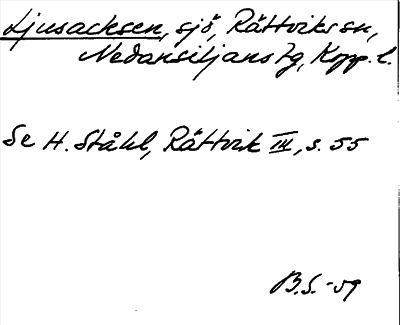 Ljusacksen, sjö, Rättviks sn,
Nedansiljans tg, Kopp. l.
Se H. Ståhl, Rättvik III, s. 55
B.S. -59